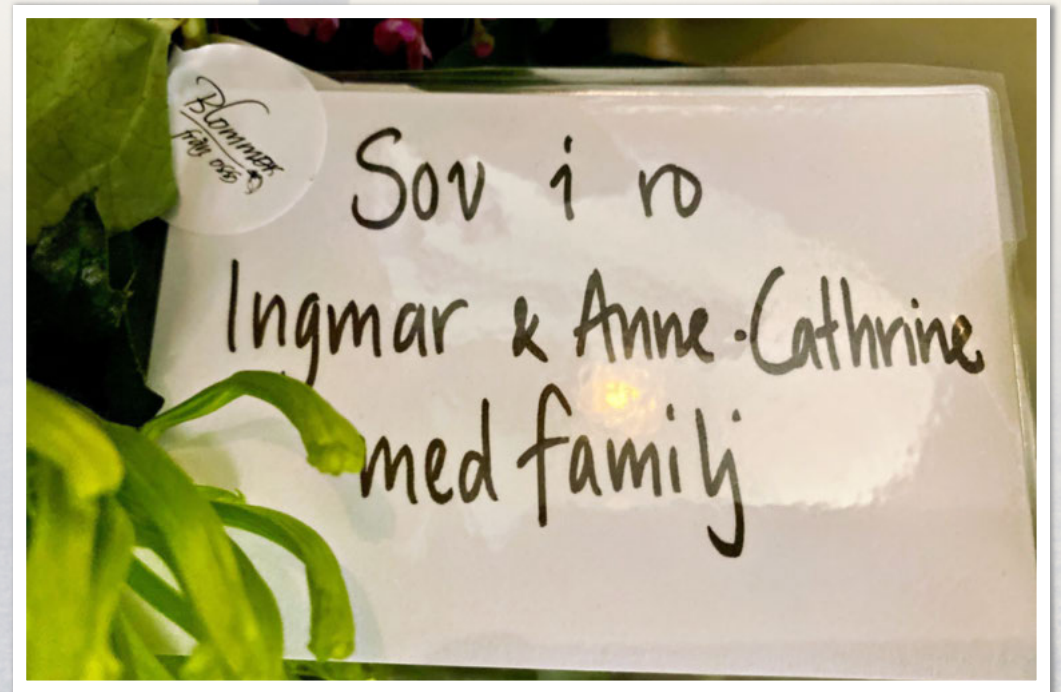 Blommor
från oss
Sov i ro
Ingmar & Anne-Cathrine
med familj